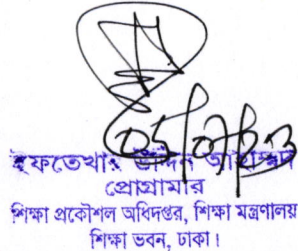 ইফতেখার উদ্দিন
প্রোগ্রামার
শিক্ষা প্রকৌশল অধিদপ্তর, শিক্ষা মন্ত্রণালয়
শিক্ষা ভবন, ঢাকা।